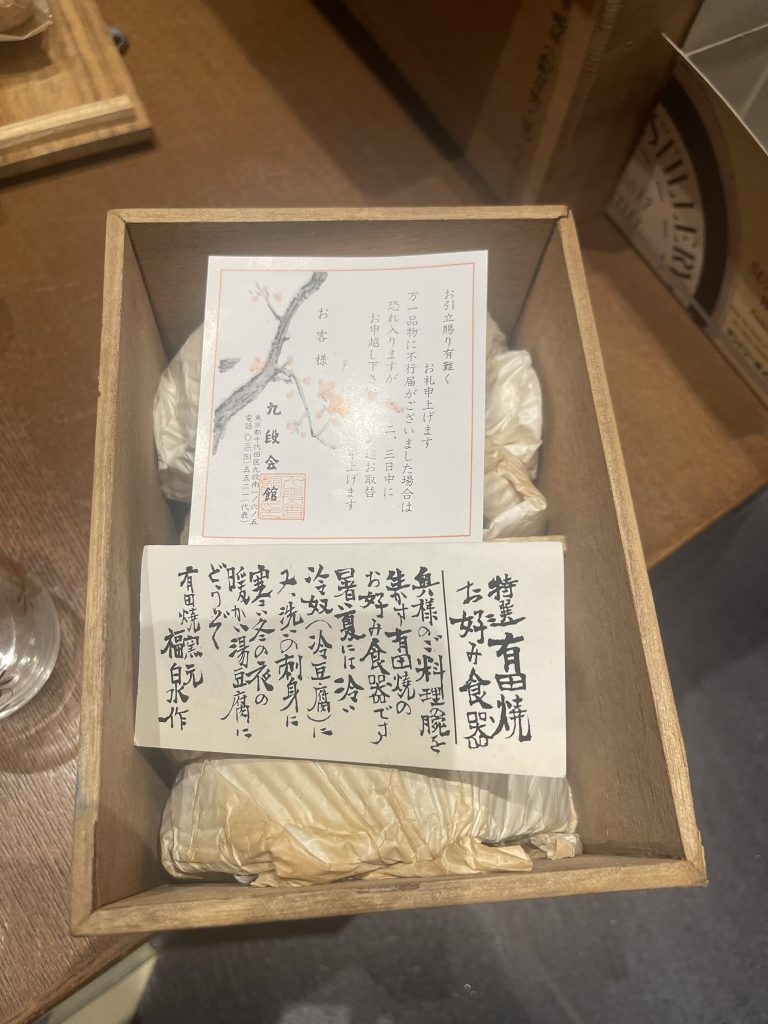 お引立賜り有難く
お礼申上げます
万一品物に不行届がございました場合は
恐れ入りますが 二、三日中に
お申越し下さ
お取替
申上げます
お客様
九段会館
東京都千代田区九段南一ノ六ノ五
電話 〇三(261)五五二一(代表)
特選 有田焼
お好み食器
奥様のご料理の腕を
生かす有田焼の
お好み食器です
暑い夏には冷い
冷奴(冷豆腐)に
又、洗いの刺身に
寒い冬の夜の
暖かい湯豆腐に
どうぞ
有田焼窯元
福白水作
STILLERY